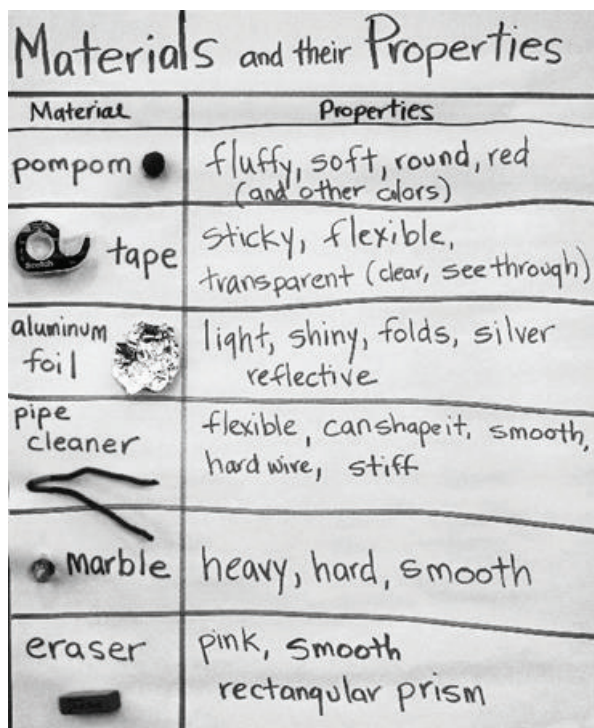 Materials and their Properties
Material Properties
pompom fluffy, soft, round, red
(and other colors)
Scotch
tape sticky, flexible,
transparent (clear, see through)
aluminum light, shiny, folds, silver
foil reflective
pipe flexible, can shape it, smooth,
cleaner hard wire, stiff
marble heavy, hard, smooth
eraser pink, smooth
rectangular prism